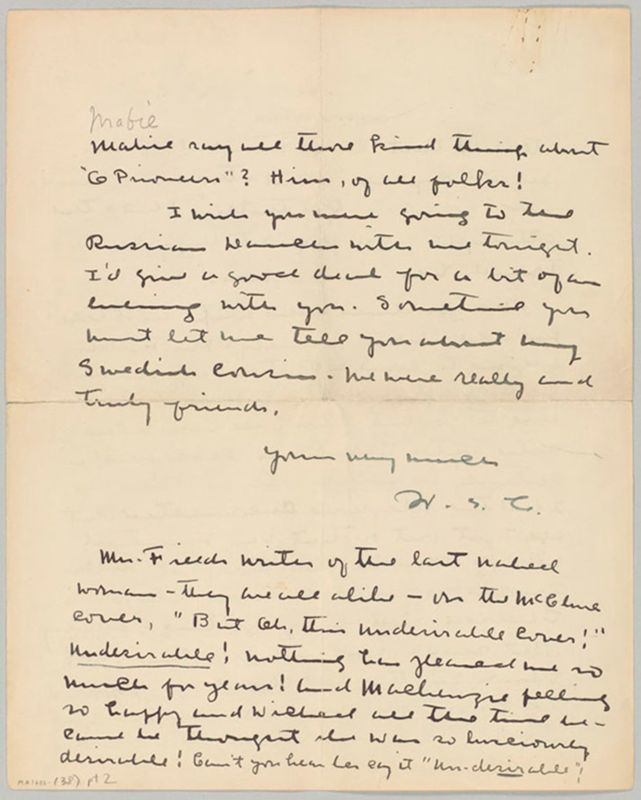 Mabie
Mabie say all those kind things about
"O Pioneers"? Him, of all folks!
I wish you were going to the
Russian Dancers with me tonight.
I'd give a good deal for a bit of an
evening with you. Sometime you
must let me tell you about my
Swedish Cousin. We were really and
truly friends.
Yours very much
W. S. C.
Mrs. Fields writes of the last naked
woman - they are all alike - on the McClure
cover, "But Oh, this undesirable cover!"
Undesirable! Nothing has pleased me so
much for years! And Mackenzie feeling
so happy and wicked all the time be-
cause he thought she was so lusciously
desirable! Can't you hear her say it "Un-desirable"!
MA 1602 (38) pt 2